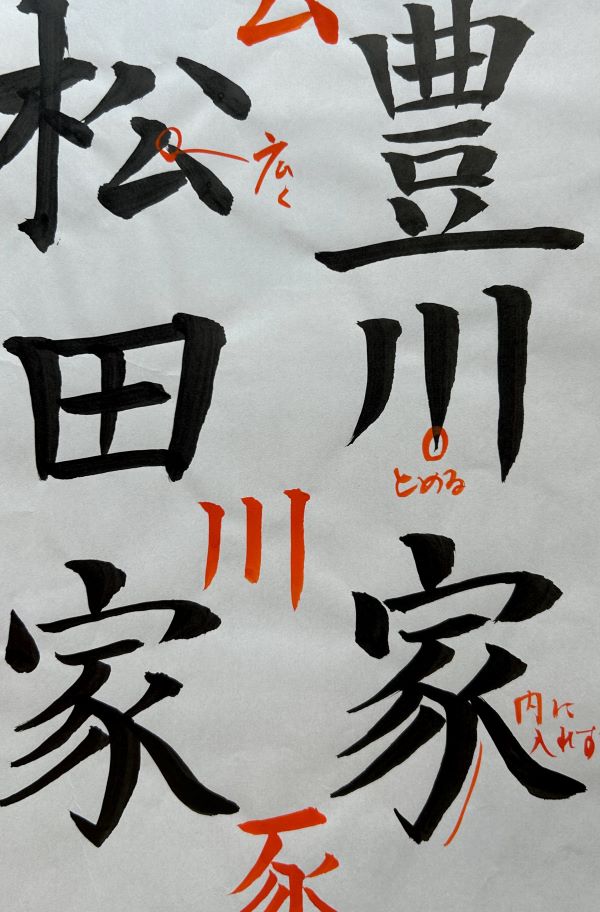 豊川家
松田家
ム
広く
とめる
川
内に
入れす
豕